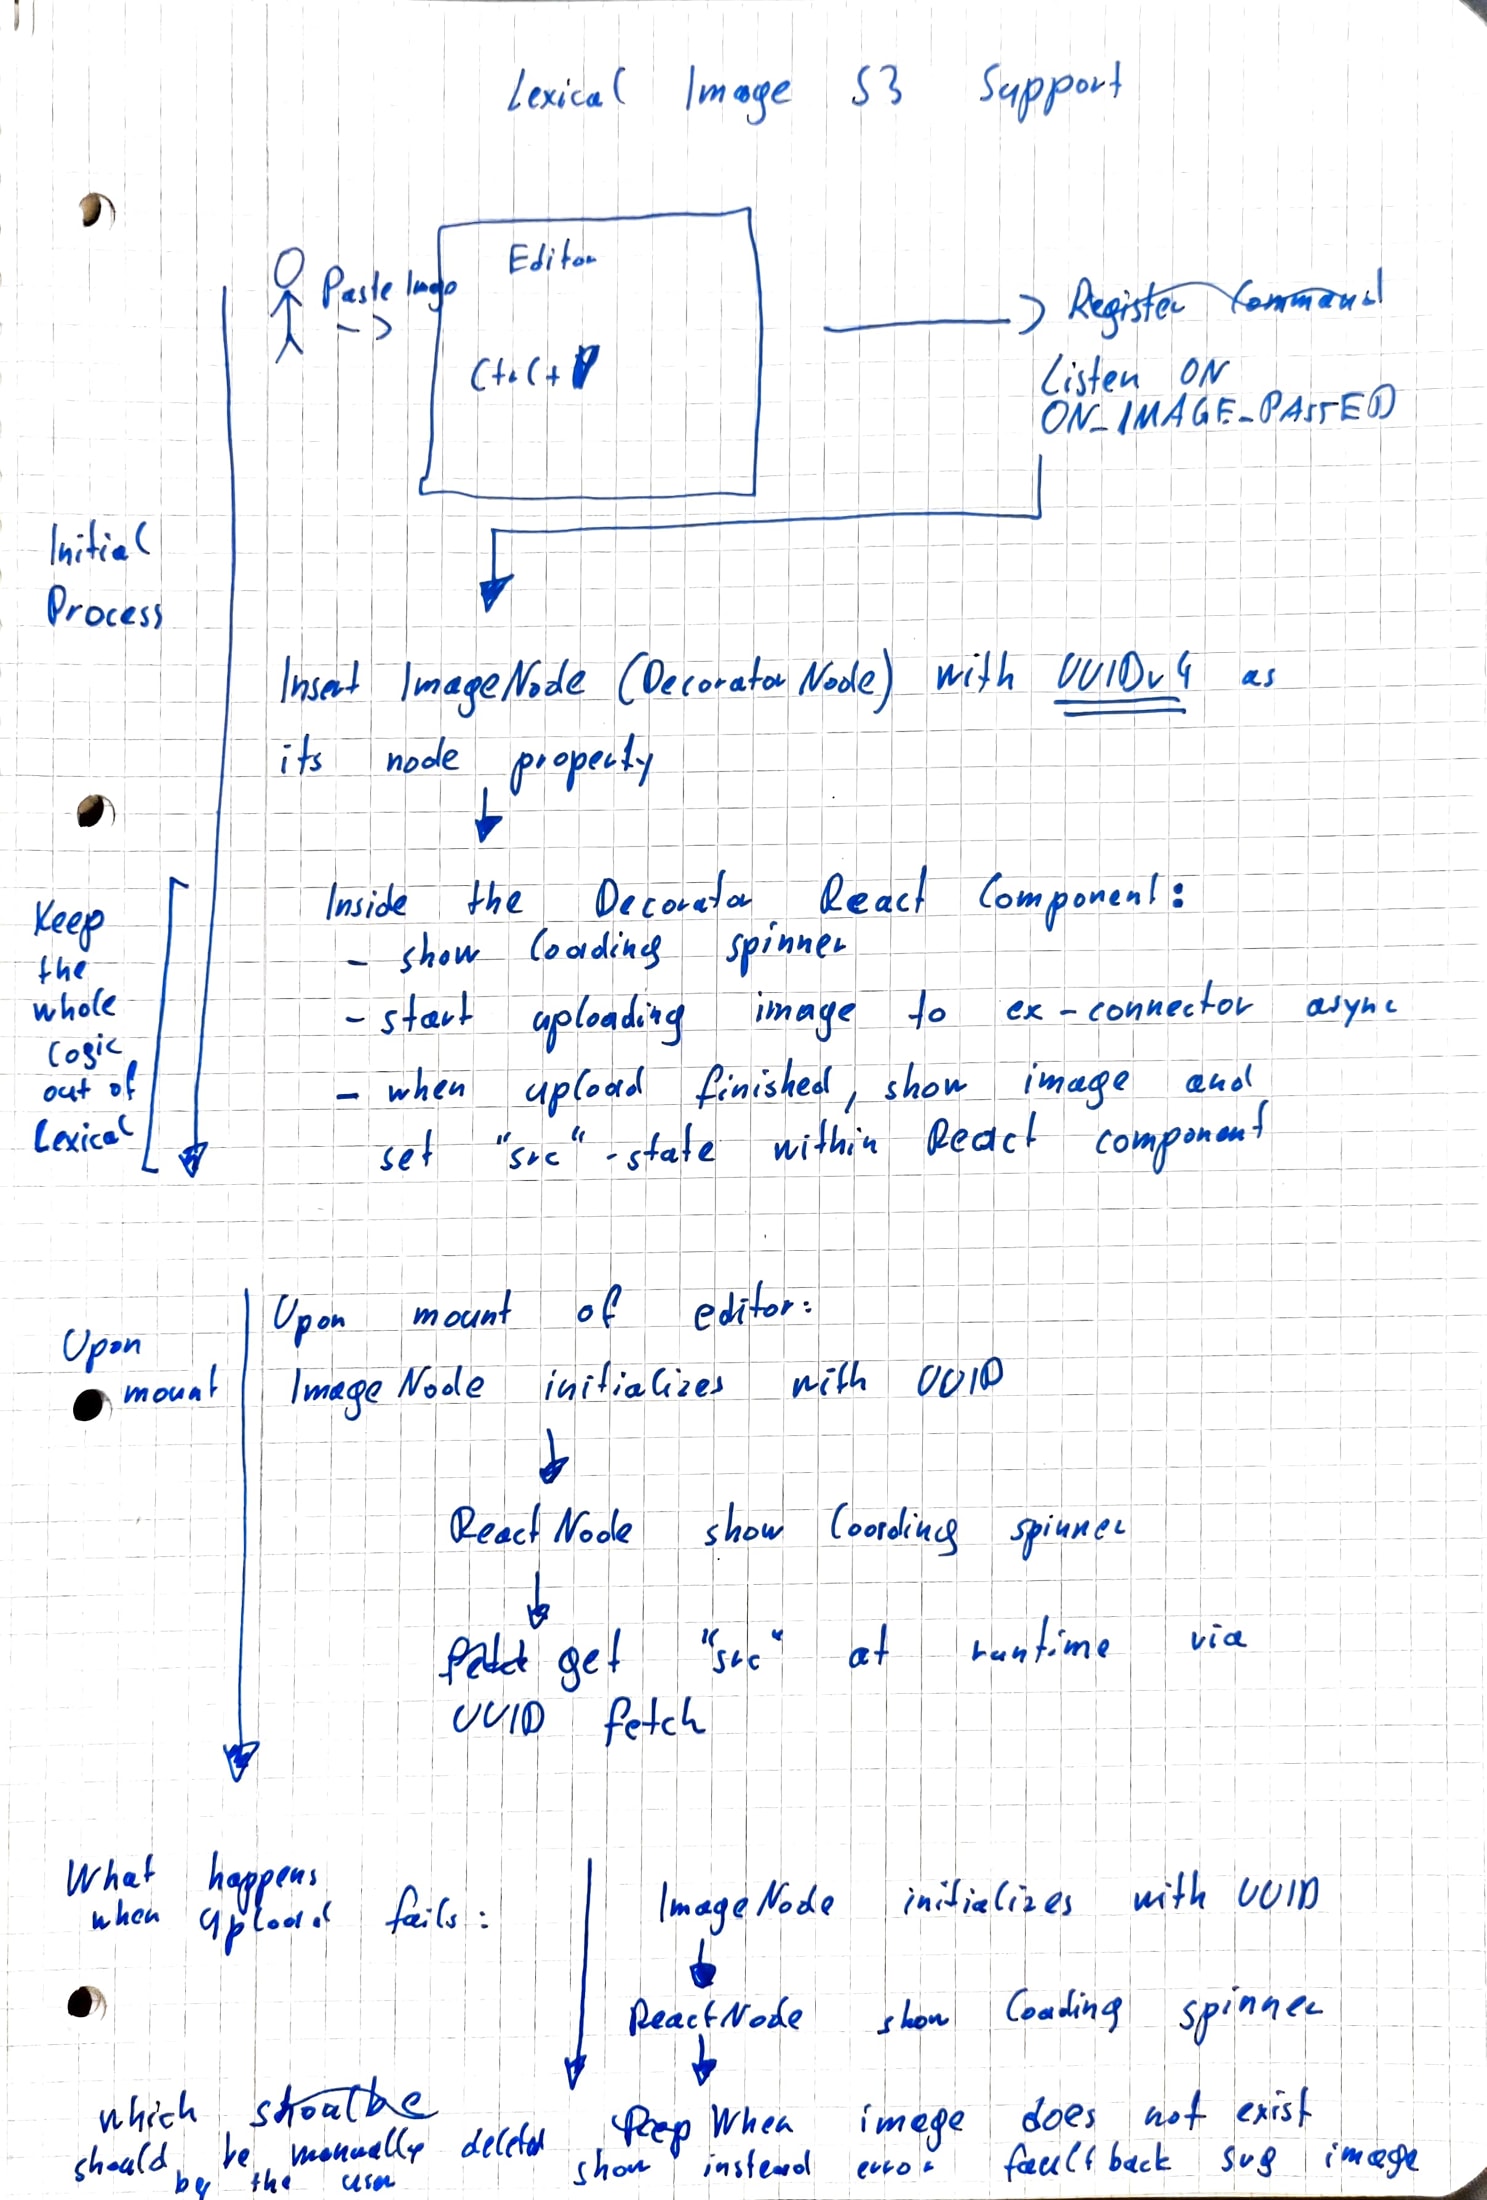 Lexical Image S3 Support
Editor
Paste Image
Register Command
Ctrl + V
Listen ON
ON_IMAGE_PASTED
Initial
Process
Insert ImageNode (DecoratorNode) with UUIDv4 as
its node property
Keep
the
whole
logic
out of
Lexical
Inside the Decorator React Component:
- show loading spinner
- start uploading image to ex-connector async
- when upload finished, show image and
set "src"-state within React component
Upon
mount
Upon mount of editor:
ImageNode initializes with UUID
ReactNode show loading spinner
get "src" at runtime via
UUID fetch
What happens
when upload fails:
ImageNode initializes with UUID
ReactNode show loading spinner
When image does not exist
show instead error faultback svg image
which
should be manually deleted
by the user